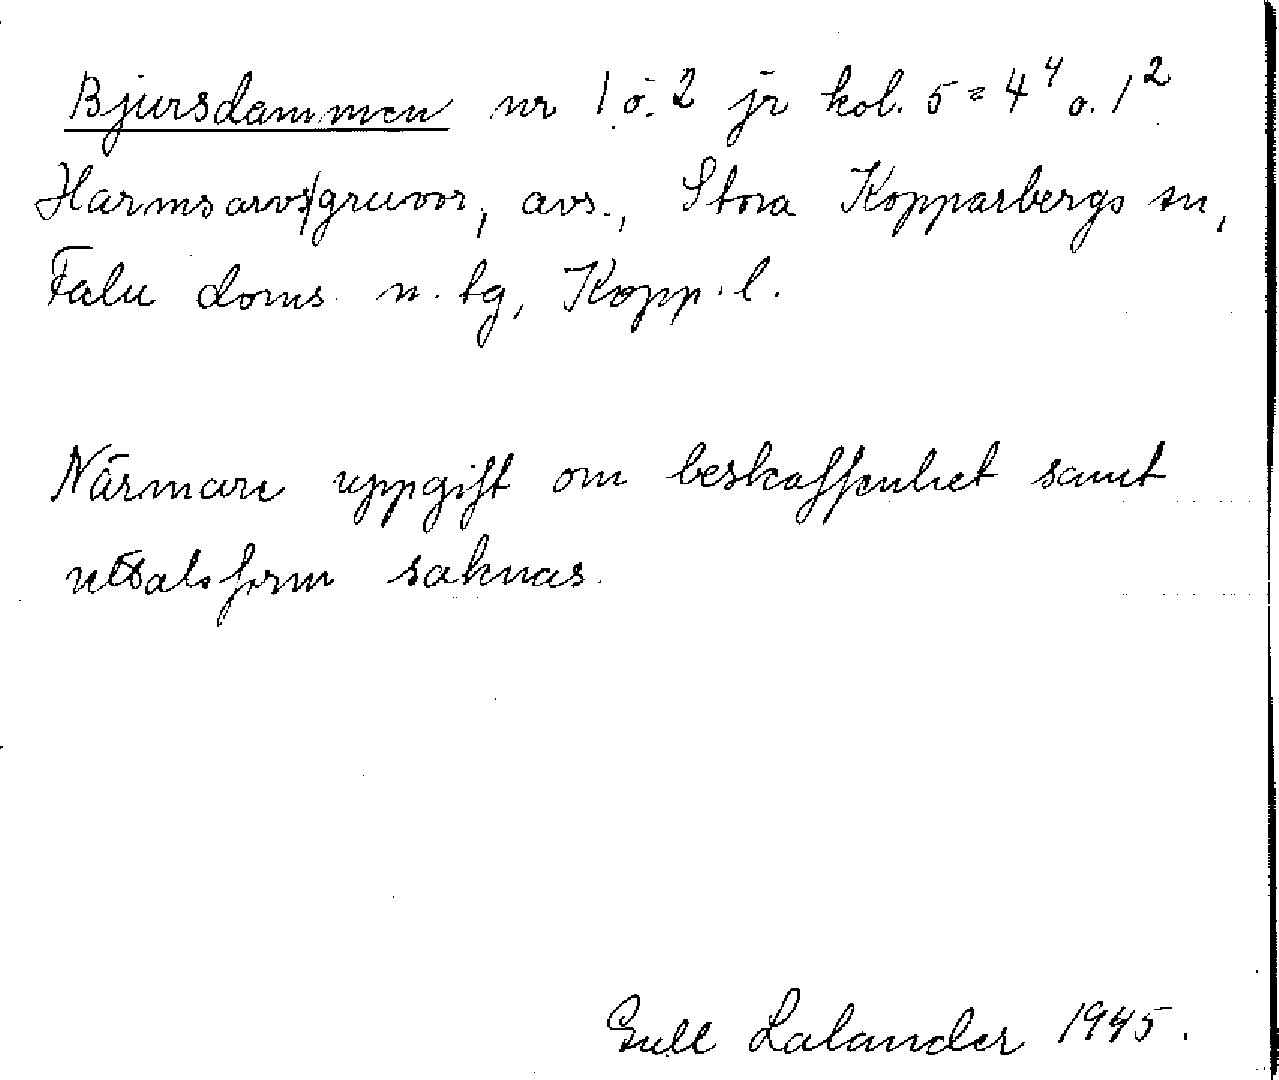 Bjursdammen nr 1 o. 2 jr kol. 5 = 4⁴ o. 1²
Harmsarvsgruvor, avs., Stora Kopparbergs sn,
Falu doms. n. tg, Kopp. l.
Närmare uppgift om beskaffenhet samt
uttalsform saknas.
Gull Lalander 1945.